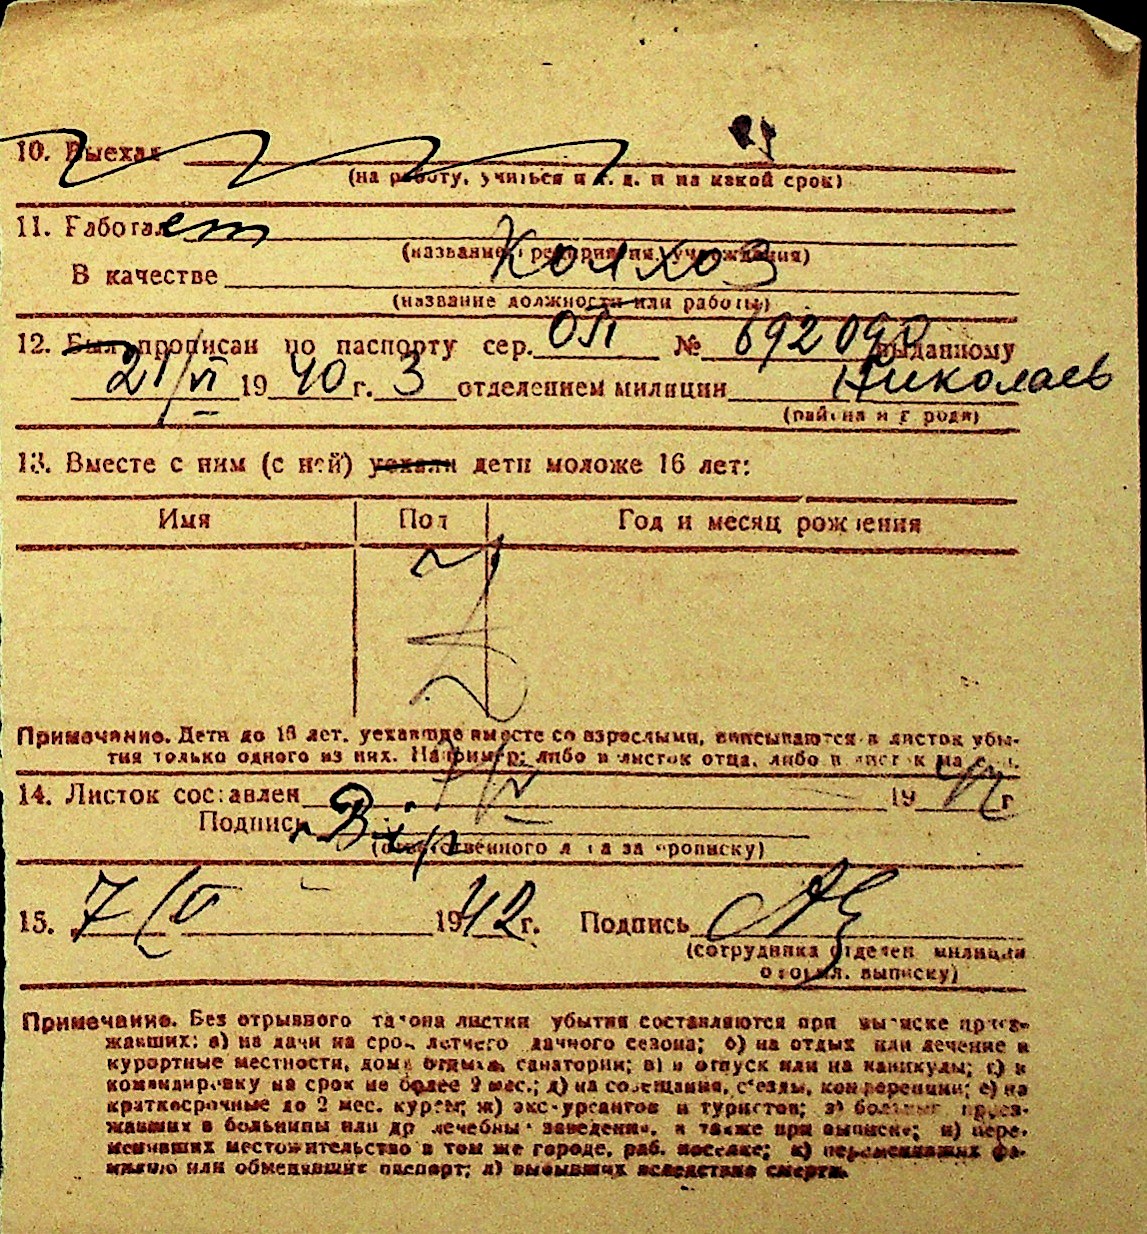 10. Выехал
(на работу, учиться и т. д. и на какой срок)
11. Работает
(название предприятия, учреждения)
Колхоз
В качестве
(название должности или работы)
12. Был прописан по паспорту сер. ОЛ № 692090 выданному
21/VI 1940 г. 3 отделением милиции Николаев
(района и города)
13. Вместе с ним (с ней) уехали дети моложе 16 лет:
Имя Пол Год и месяц рождения
Примечание. Дети до 16 лет, уехавшие вместе со взрослыми, вписываются в листок убы-
тия только одного из них. Например: либо в листок отца, либо в листок
14. Листок составлен 7/V 1942 г
Подпись
(ответственного лица за прописку)
15. 7/V 1942 г. Подпись
(сотрудника отделен милиции
оформл. выписку)
Примечание. Без отрывного талона листки убытия составляются при выписке приез-
жавших: а) на дачи на срок летнего дачного сезона; б) на отдых или лечение в
курортные местности, дома отдыха, санатории; в) в отпуск или на каникулы; г) в
командировку на срок не более 2 мес.; д) на совещания, с'езды, конференции; е) на
краткосрочные до 2 мес. курсы; ж) экскурсантов и туристов; з) больных приез-
жавших в больницы или др лечебны заведения, а также при выписке; и) пере-
менивших местожительство в том же городе, раб. поселке; к) переменивших фа-
милию или обменявших паспорт; л) выбывших вследствие смерти.